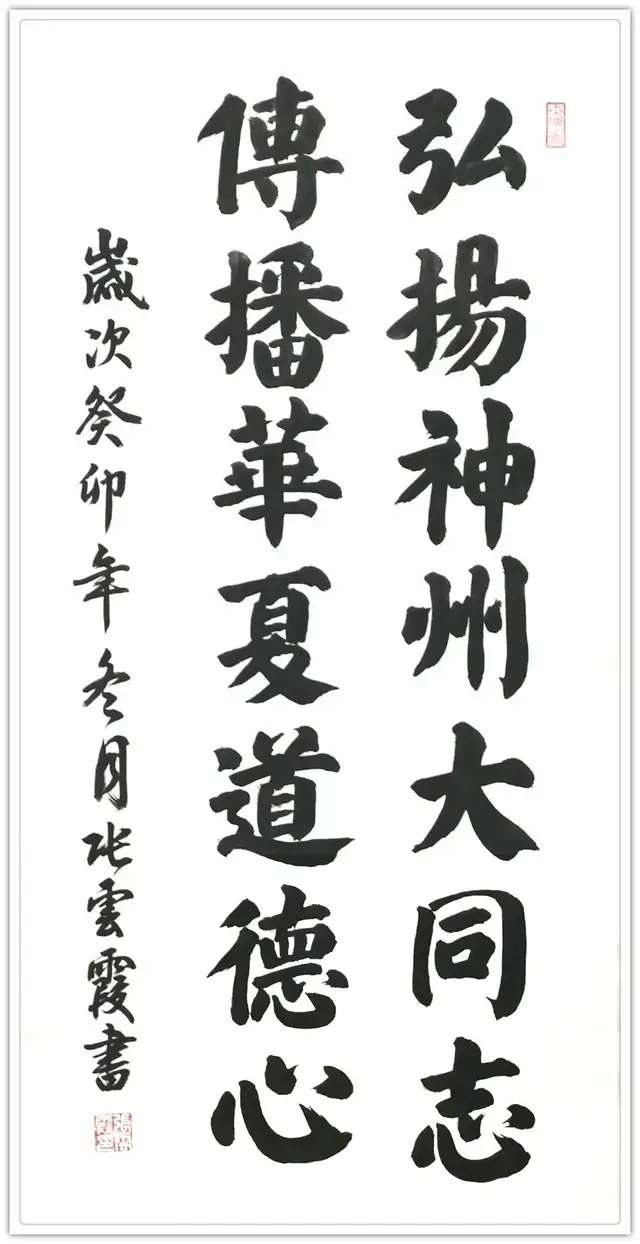 弘揚神州大同志
傳播華夏道德心
歲次癸卯年冬月張雲霞書